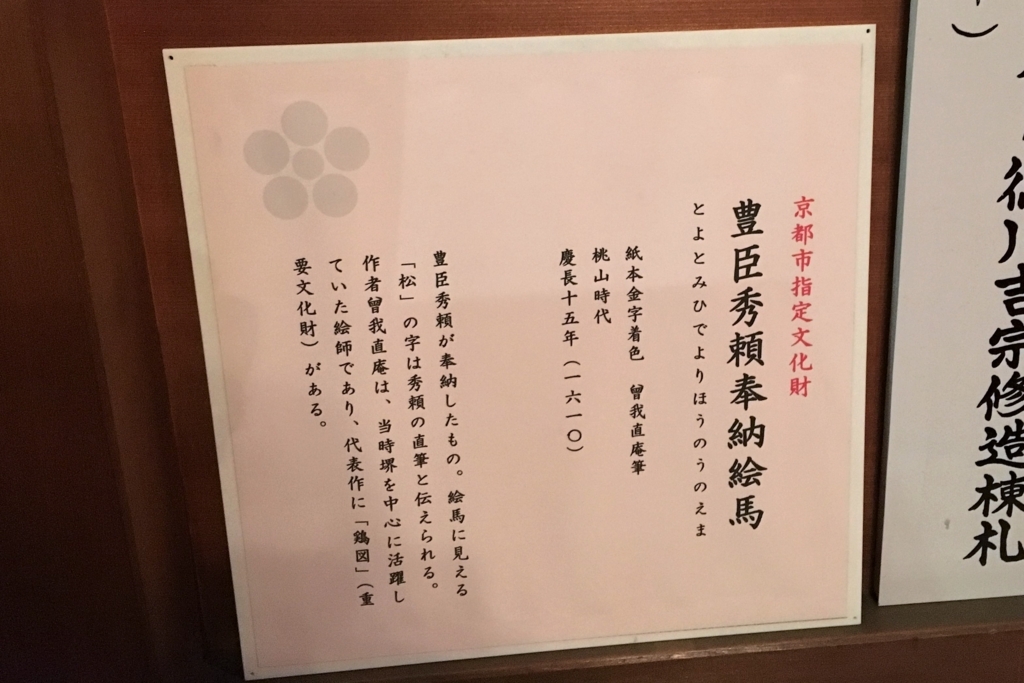 京都市指定文化財
豊臣秀頼奉納絵馬
とよとみひでよりほうのうのえま
紙本金字着色　曾我直庵筆
桃山時代
慶長十五年（一六一〇）
豊臣秀頼が奉納したもの。絵馬に見える
「松」の字は秀頼の直筆と伝えられる。
作者曾我直庵は、当時堺を中心に活躍し
ていた絵師であり、代表作に「鶏図」（重
要文化財）がある。
徳川吉宗修造棟札